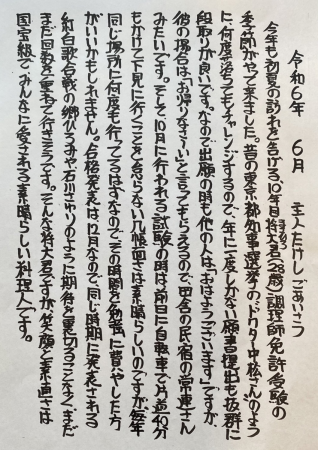 令和6年　6月　主人たけしごあいさつ
今年も初夏の訪れを告げる10年目特大君(28歳)調理師免許受験の
季節がやって来ました。昔の東京都知事選挙のドクター中松さんのよう
に、何度落ちてもチャレンジするので、年に一度しかない願書提出も抜群に
段取りが良いです。なので出願の時も他の人は「おはようございます」ですが、
彼の場合は「お帰りなさ〜い」と言ってもらえるので、田舎の民宿の常連さん
みたいです。そして、10月に行われる試験の時は前日に自転車で片道40分
もかけて下見に行くことを怠らない几帳面さは素晴らしいのですが、毎年
同じ場所に何度も行ってるはずなので、その時間を勉強に費やした方
がいいかもしれません。合格発表は12月なので、同じ時期に発表される
紅白歌合戦の郷ひろみや石川さゆりのように期待を裏切ることなく、まだ
まだ回数を重ねて行きそうです。そんな特大君ですが、笑顔と素直さは
国宝級で、みんなに愛される素晴らしい料理人です。